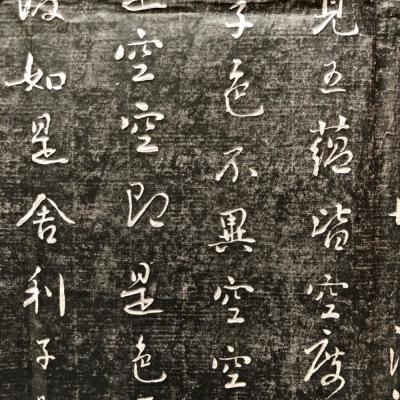 見五蘊皆空度
子色不異空空
是空空即是色
復如是舍利子是